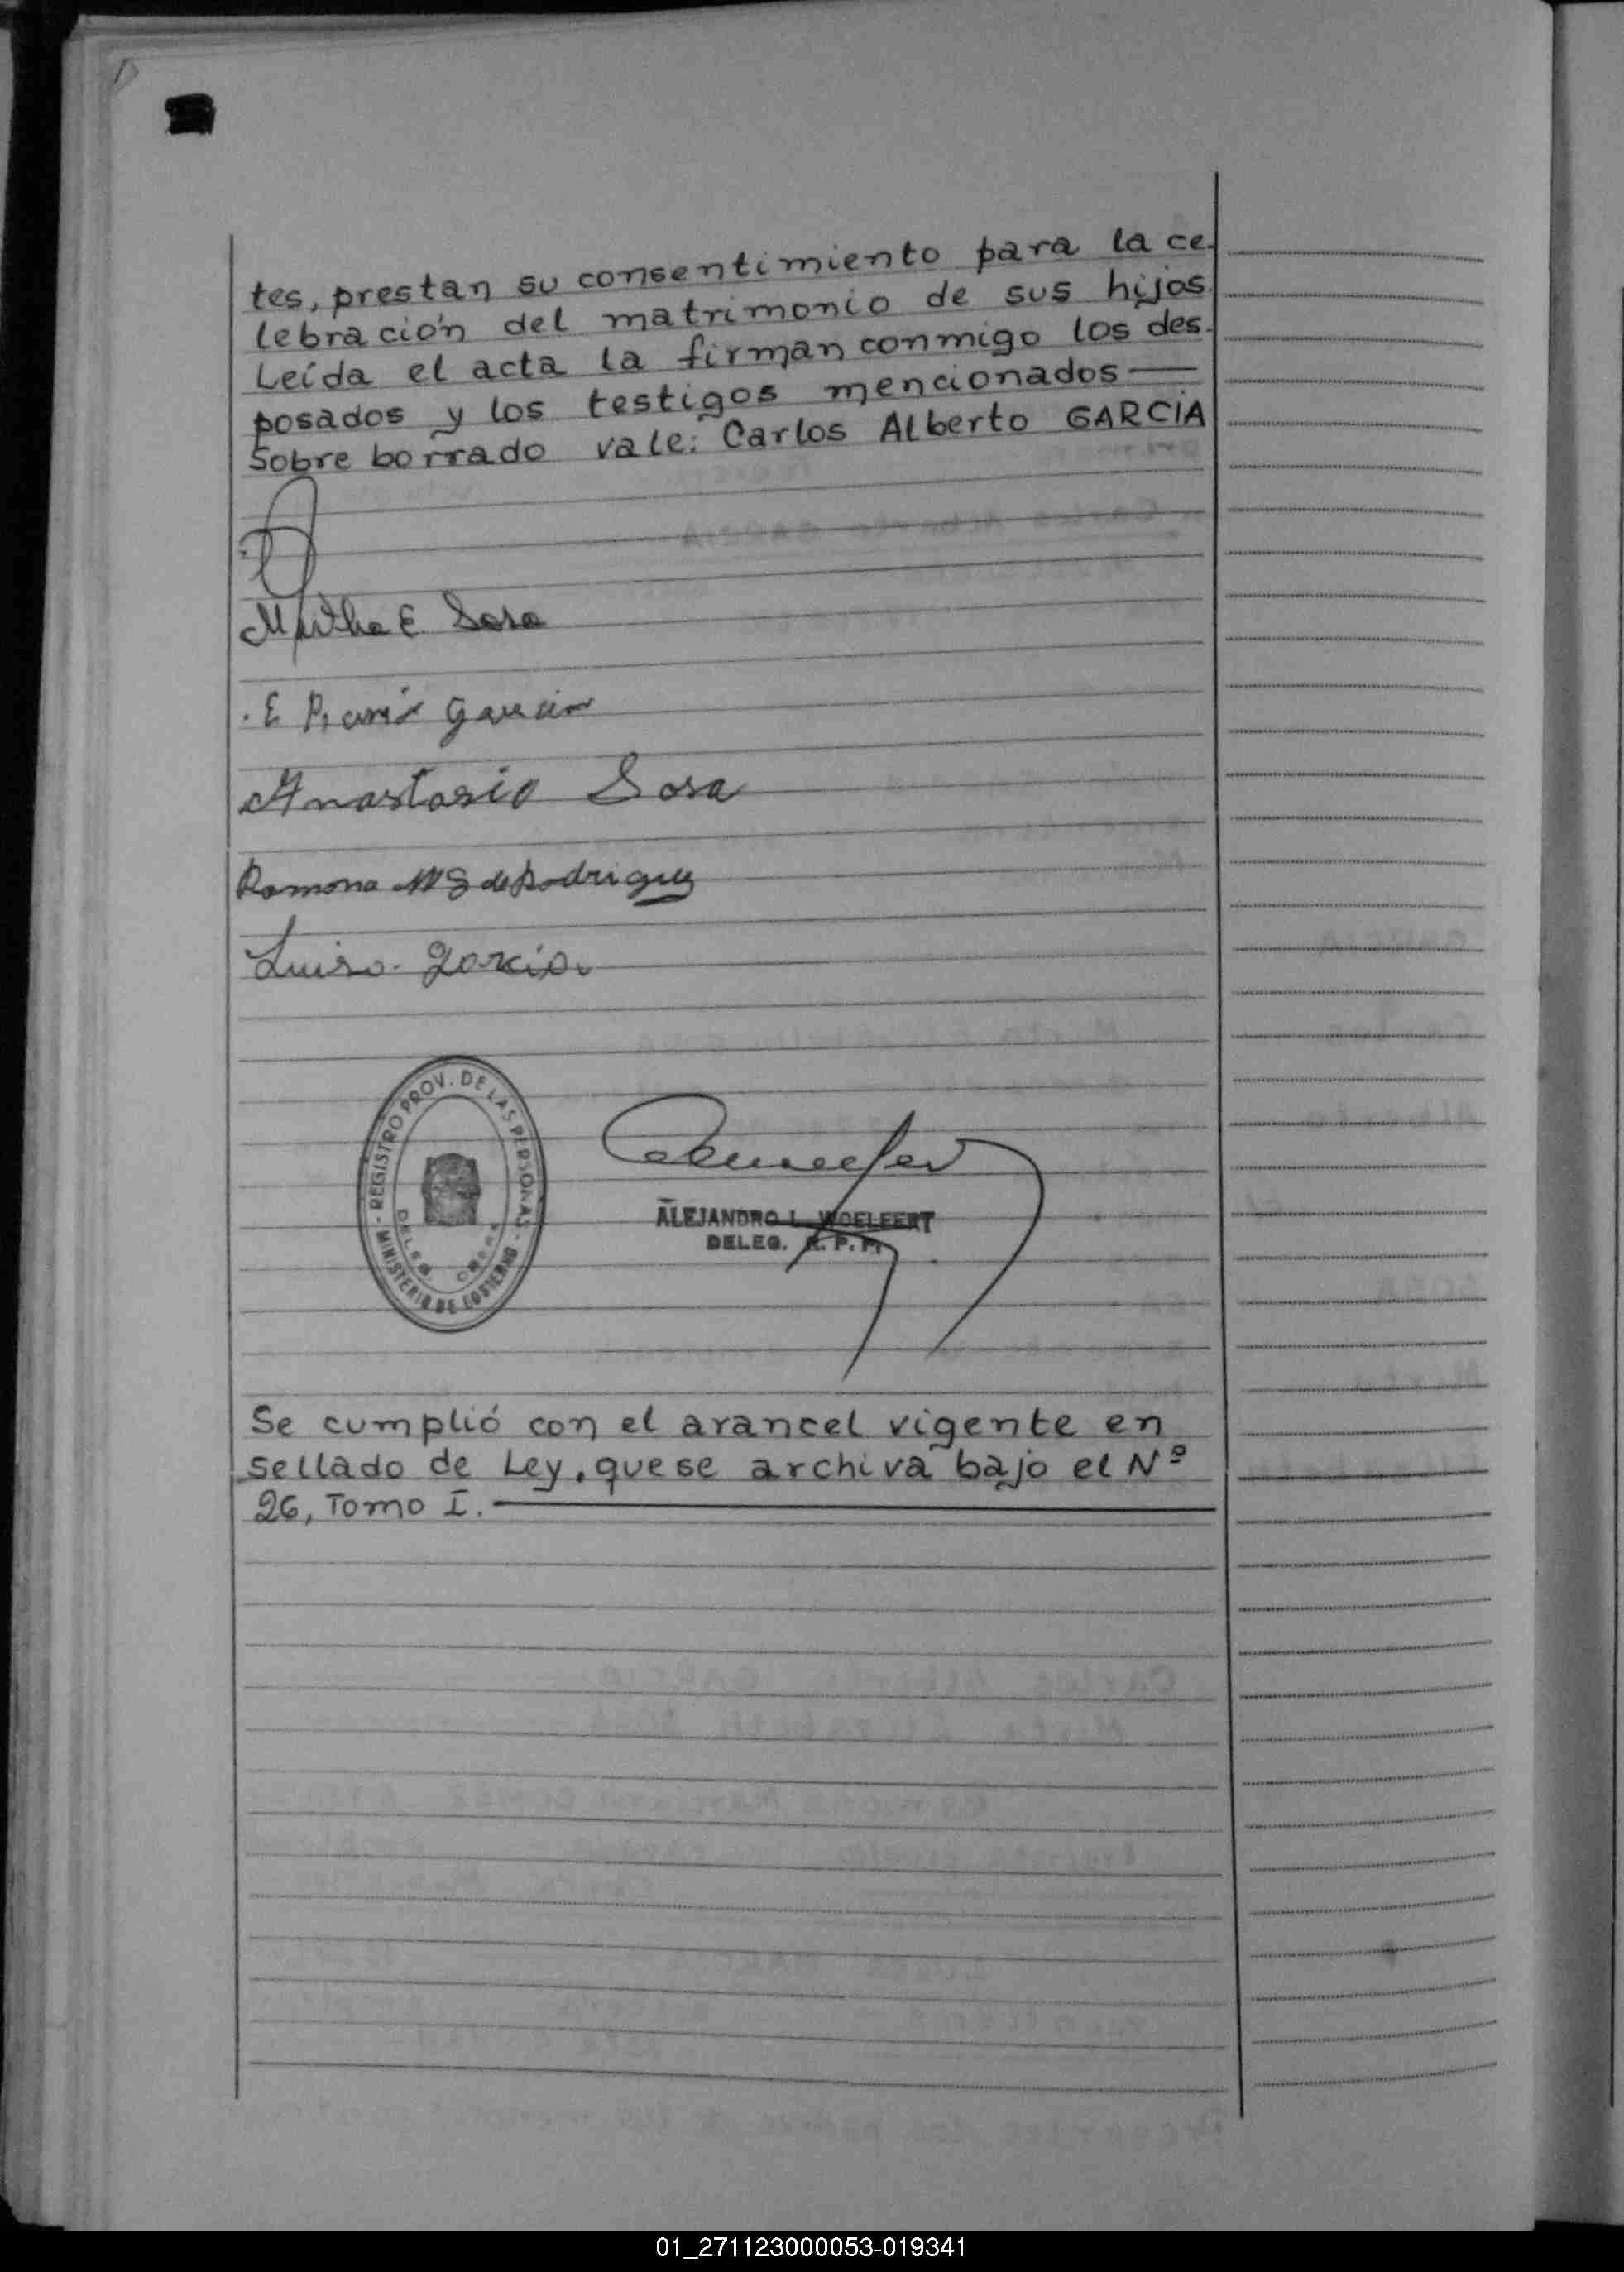 tes, prestan su consentimiento para la ce-
lebración del matrimonio de sus hijos.
Leída el acta la firman conmigo los des-
posados y los testigos mencionados —
Sobre borrado vale: Carlos Alberto GARCIA
Mirtha E. Sosa
E García
Anastasio Sosa
Ramona M G de Rodriguez
Luisa García
- REGISTRO PROV. DE LAS PERSONAS -
MINISTERIO DE GOBIERNO
DELEG.
ALEJANDRO L. WOELFERT
DELEG. R. P. P.
Se cumplió con el arancel vigente en
sellado de Ley, que se archiva bajo el Nº
26, Tomo I.
01_271123000053-019341